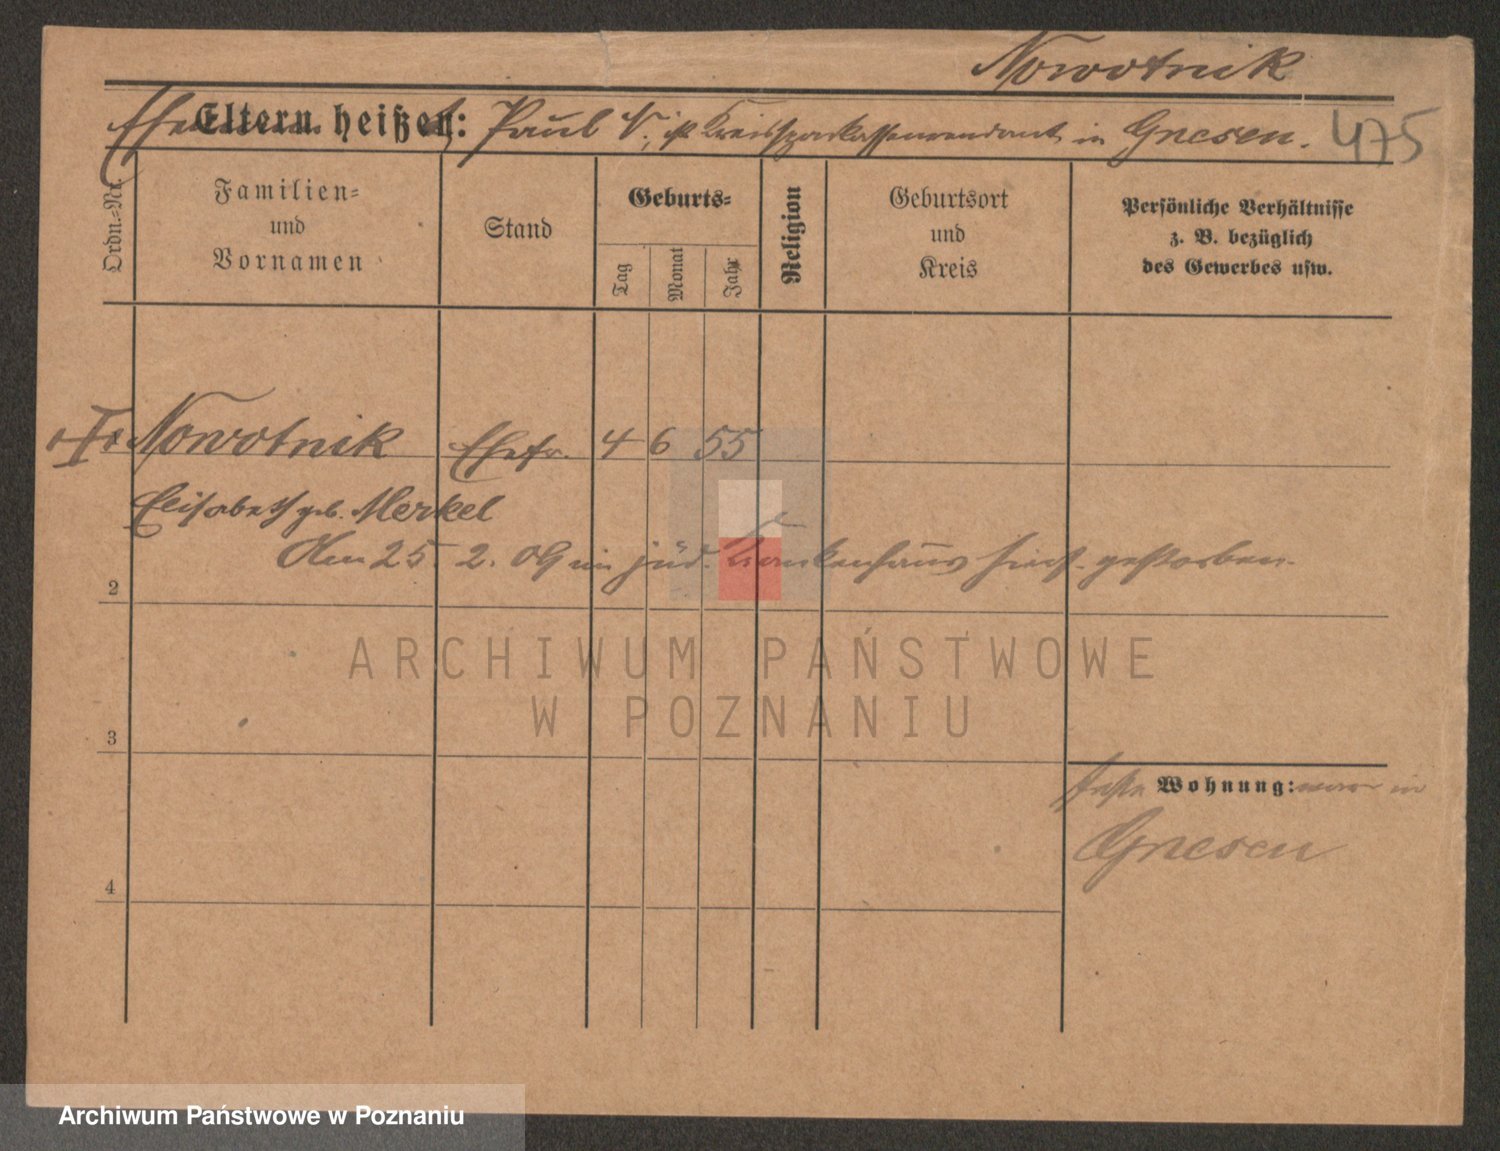 Nowotnik
Ehemann heißt: Paul N., ist Kreissparkassenrendant in Gnesen. 475
Eltern heißen:
Ordn.-Nr.
Familien-
und
Vornamen
Stand
Geburts-
Tag
Monat
Jahr
Religion
Geburtsort
und
Kreis
Persönliche Verhältnisse
z. B. bezüglich
des Gewerbes usw.
Nowotnik Ehefr. 4 6 55
Elisabeth geb. Merkel
Am 25. 2. 09 im jüd. Krankenhaus hies. gestorben.
2
ARCHIWUM PAŃSTWOWE
W POZNANIU
3
feste Wohnung: war in
Gnesen
4
Archiwum Państwowe w Poznaniu